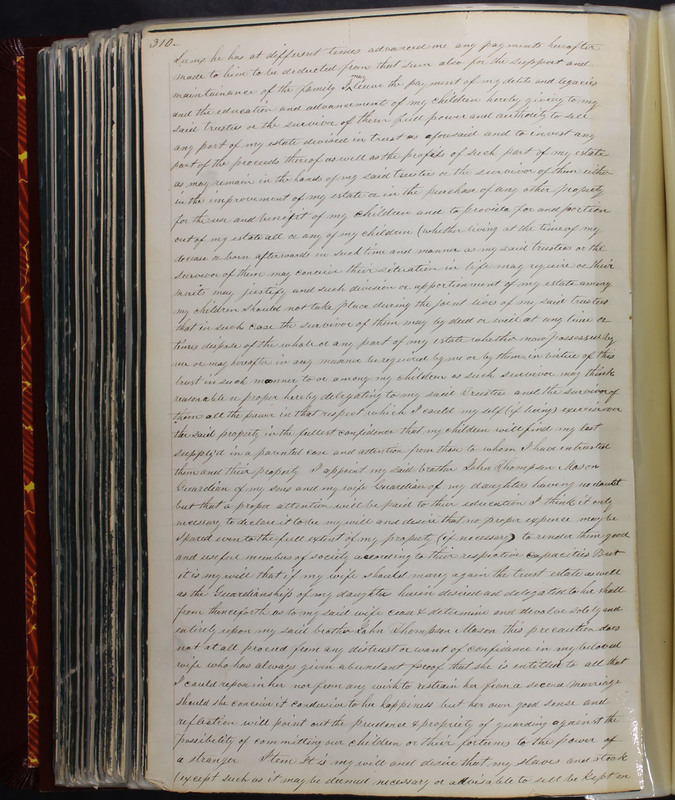 310.
Sums he has at different times advanced me any payments hereafter
made to him to be deducted from that sum also for the support and
maintainance of the family I may leave the payment of my debts and legacies
and the education and advancement of my children hereby giving to my
said trustees or the survivor of them full power and authority to sell
any part of my estate devised in trust as aforesaid and to invest any
part of the proceeds thereof as well as the profits of such part of my estate
as may remain in the hands of my said trustees or the survivor of them either
in the improvement of my estate or in the purchase of any other property
for the use and benefit of my children and to provide for and portion
out of my estate all or any of my children (whether living at the time of my
decease or born afterwards in such time and manner as my said trustees or the
survivor of them may conceive their situation in life may require or their
merits may justify and such division or apportionment of my estate among
my children should not take place during the joint lives of my said trustees
that in such case the survivor of them may by deed or will at any time or
times dispose of the whole or any part of my estate whether now possessed by
me or may hereafter in any manner be required by me or by them in virtue of this
trust in such manner to or among my children as such survivor may think
reasonable & proper hereby delegating to my said Trustees and the survivor of
them all the power in that respect which I could my self (if living) exercise over
the said property in the fullest confidence that my children will find my lost
supply'd in a parental care and attention from those to whom I have entrusted
them and their property I appoint my said brother John Thompson Mason
Guardian of my sons and my wife Guardian of my daughters having no doubt
but that a proper attention will be paid to their education I think it only
necessary to declare it to be my will and desire that no proper expence may be
spared even to the full extent of my property (if necessary) to render them good
and useful members of society according to their respective capacities But
it is my will that if my wife should marry again the trust estate as well
as the Guardianship of my daughters herein desired and delegated to her shall
from thenceforth as to my said wife cease & determine and devolve solely and
entirely upon my said brother John Thompson Mason this precaution does
not at all proceed from any distrust or want of confidence in my beloved
wife who has always given abundant proof that she is entitled to all that
I could repose in her nor from any wish to restrain her from a second marriage
should she conceive it conducive to her happiness but her own good sense and
reflection will point out the prudence & propriety of guarding against the
possibility of committing our children or their fortunes to the power of
a stranger Item It is my will and desire that my slaves and stock
(except such as it may be deemed necessary or advisable to sell be kept on